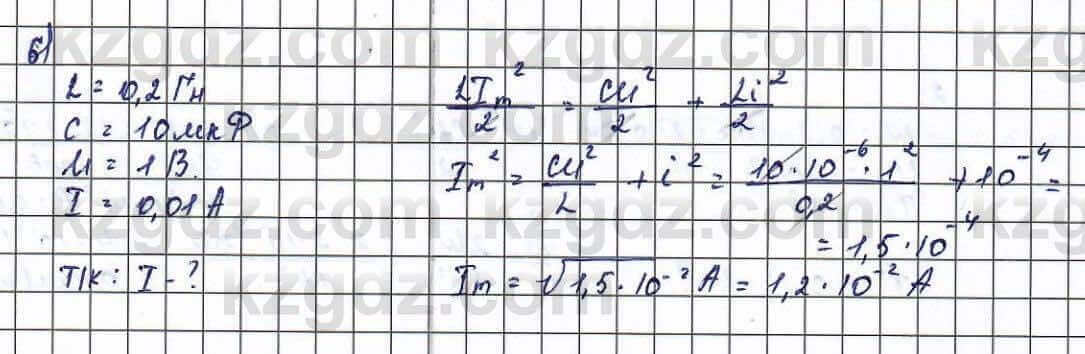 б)
L = 0,2 Гн
C = 10 мкФ
U = 1 В.
I = 0,01 А
Т/к: I - ?
LIm²/2 = CU²/2 + Li²/2
Im² = CU²/L + i² = 10·10⁻⁶·1²/0,2 + 10⁻⁴ =
= 1,5·10⁻⁴
Im = √1,5·10⁻² А = 1,2·10⁻² А
kzgdz.com